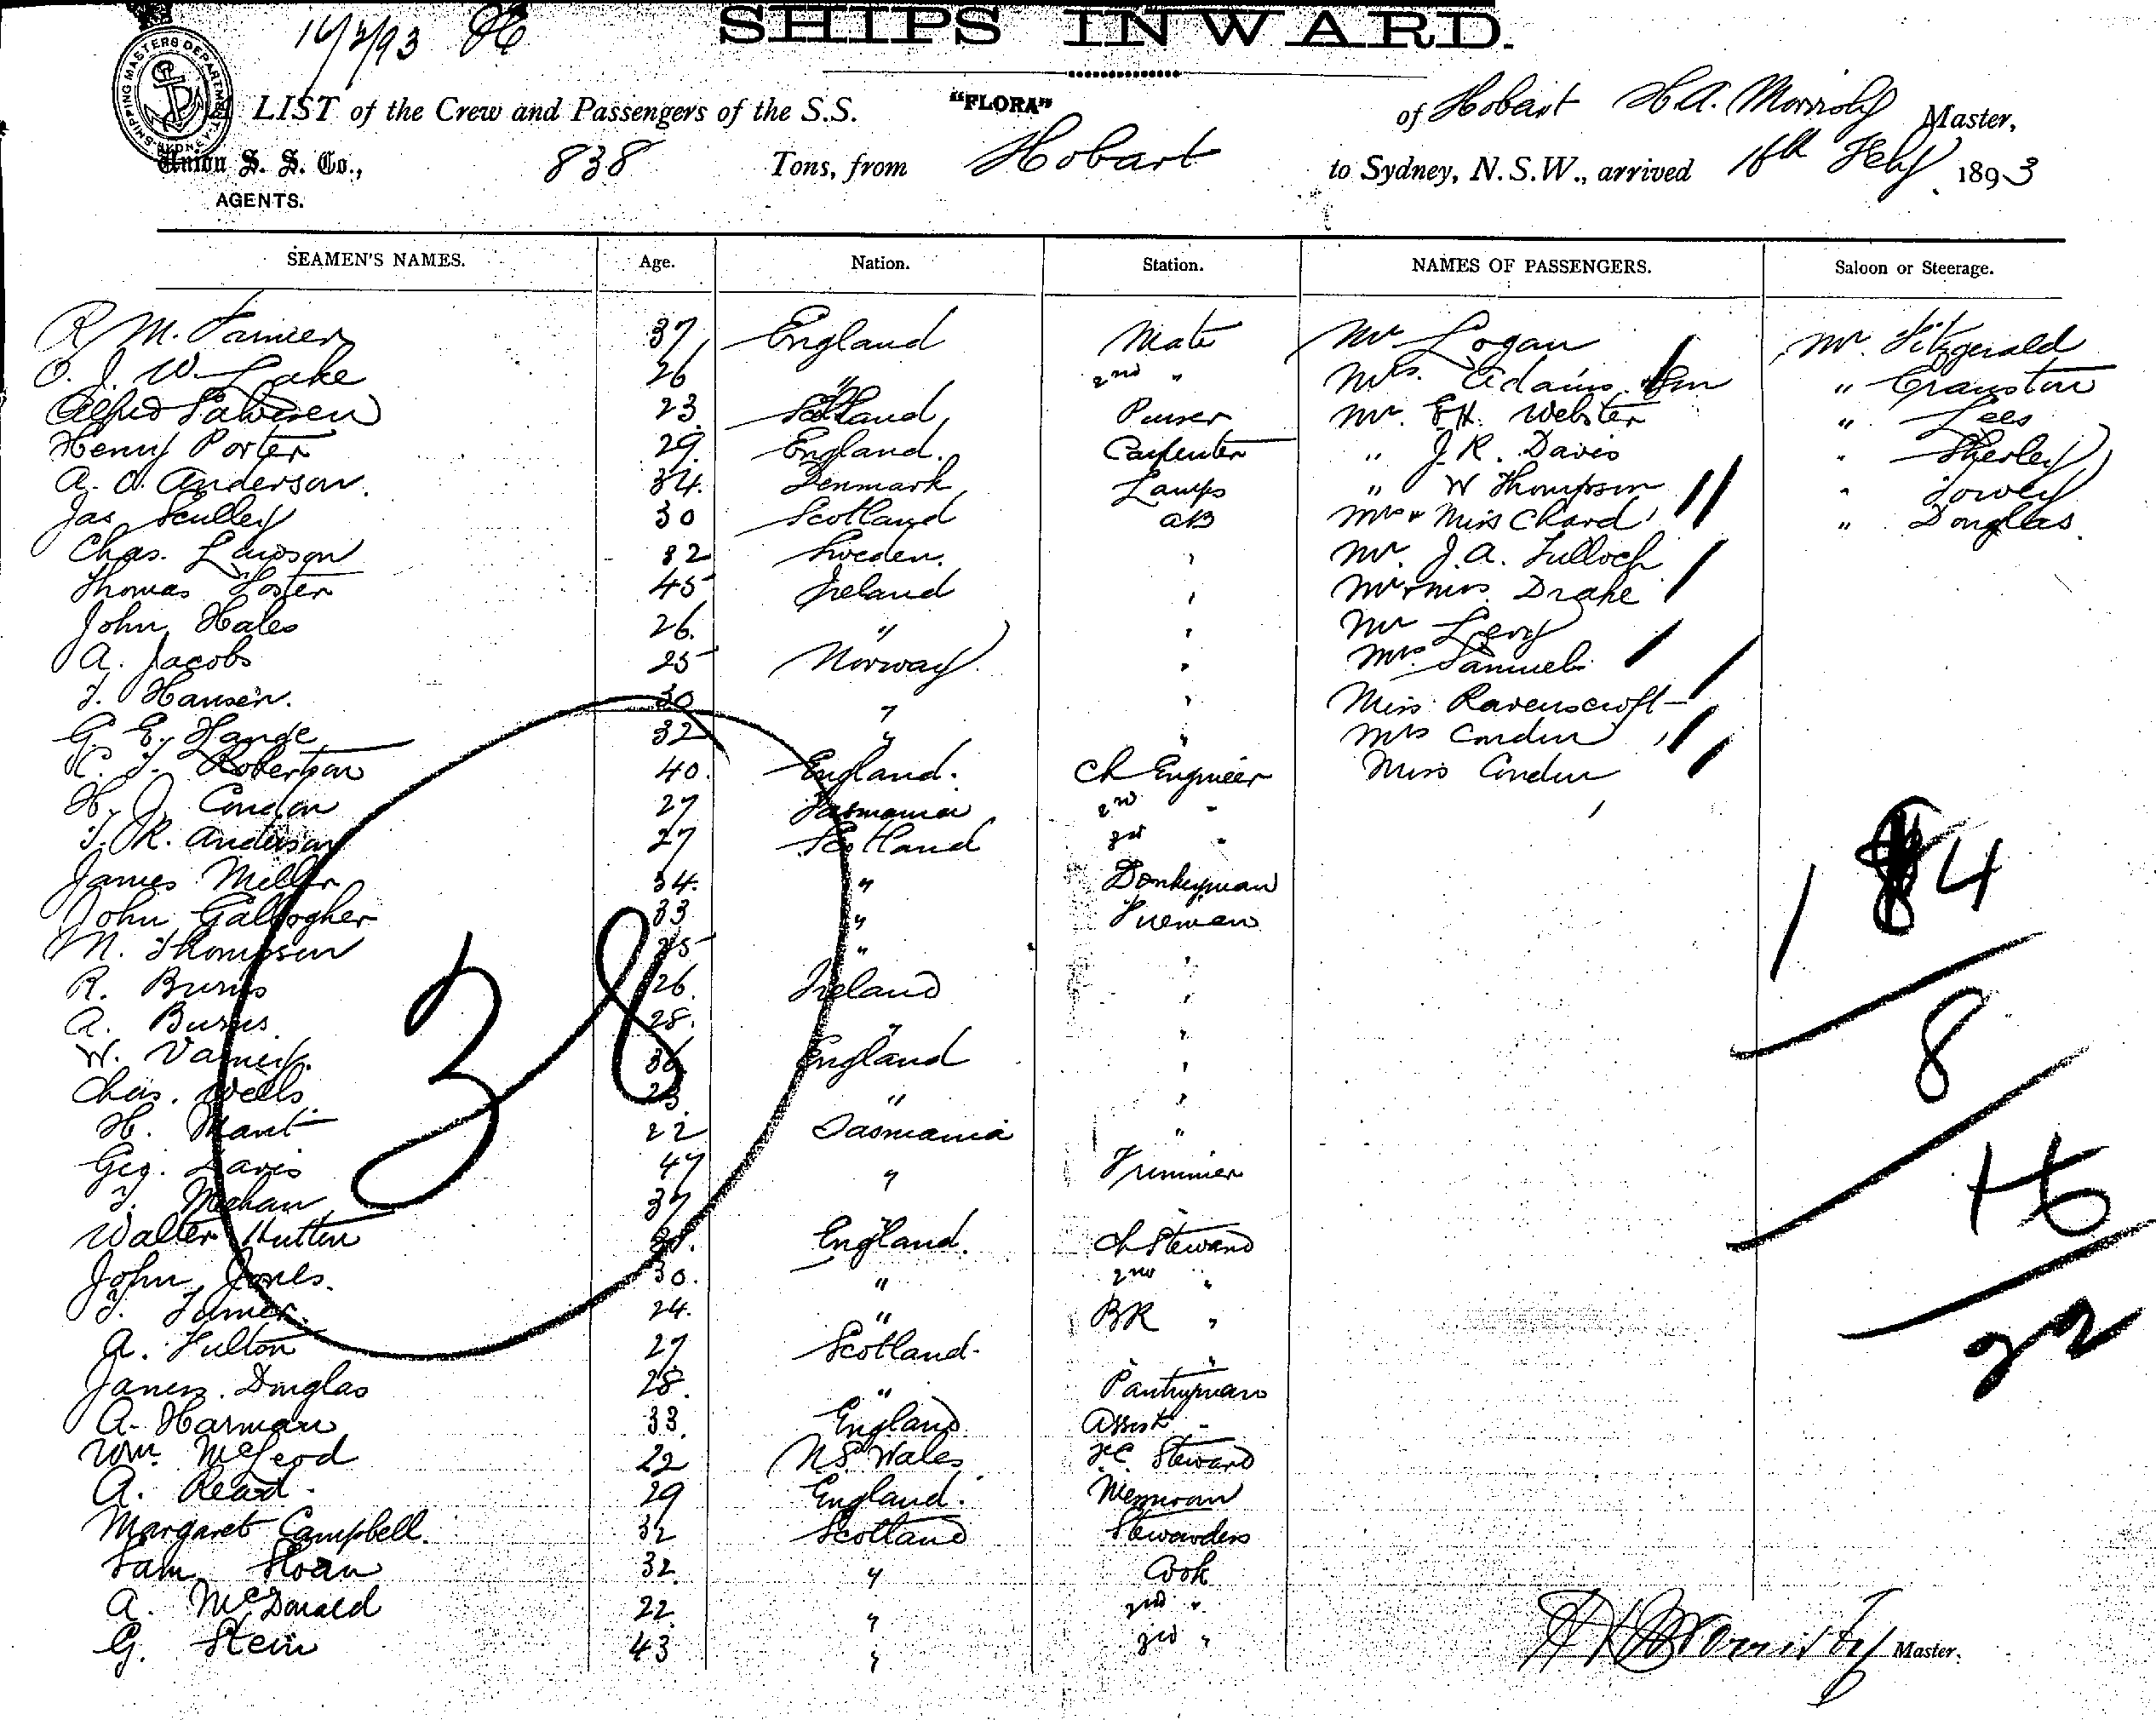 16/2/93
SHIPS INWARD.
SHIPPING MASTERS DEPARTMENT SYDNEY
A LIST of the Crew and Passengers of the S.S. "FLORA" of Hobart H.A. Master,
Union S. S. Co., 838 Tons, from Hobart to Sydney, N.S.W., arrived 16th Feby 1893
AGENTS.
SEAMEN'S NAMES. Age. Nation. Station. NAMES OF PASSENGERS. Saloon or Steerage.
R. M. 37 England Mate Mr Logan Mr. Fitzgerald
J. W. Lake 26 " 2nd " Mrs. Adams Son " Cranston
Alfred 23 Purser Mr. E.H. Webster " Lees
Henry Porter 29 England. Carpenter " J. R. Davis " Sherley
A. C. Anderson. 34. Denmark Lamps " W Thompson "
Jas Sculley 30 Scotland AB Miss Chard " Douglas
Chas. Lawson 32 Sweden. " Mr. J. A. Tulloch
Thomas Foster 45 Ireland " Mr & Mrs Drake
John Hales 26. " " Mr Levy
A. Jacobs 25 Norway " Samuel
Hansen. 30 " " Miss Ravenscroft
G. E. 32 " " Mrs Condon
Robertson 40. England. Ch Engineer Miss Condon
H. J. Condon 27 Tasmania 2nd "
R. Anderson 27 Scotland 3rd "
James Miller 34. " Donkeyman
John Gallogher 33 " Fireman
M. Thompson 25 " "
R. Burns 26. Ireland "
A. Burns 28. " "
W. Varney. 36 England "
Chas. Wells. 23. " "
H. Mant 22 Tasmania "
Geo. Davis 47 " Trimmer
Mehan 37
Walter Hutton 38. England. Ch Steward
John Jones. 30. " 2nd "
Turner. 24. " BR "
A. Fulton 27 Scotland. "
James. Douglas 28. " Pantryman
A. Harman 33. England Assist "
Wm. McLeod 22 N.S. Wales F.C. Steward
A. Read. 29 England. Messman
Margaret Campbell. 32 Scotland Stewardess
Sam Sloan 32. " Cook
A. McDonald 22. " 2nd "
G. Stein 43 " 3rd "
38
1
4
8
16
22
Master.